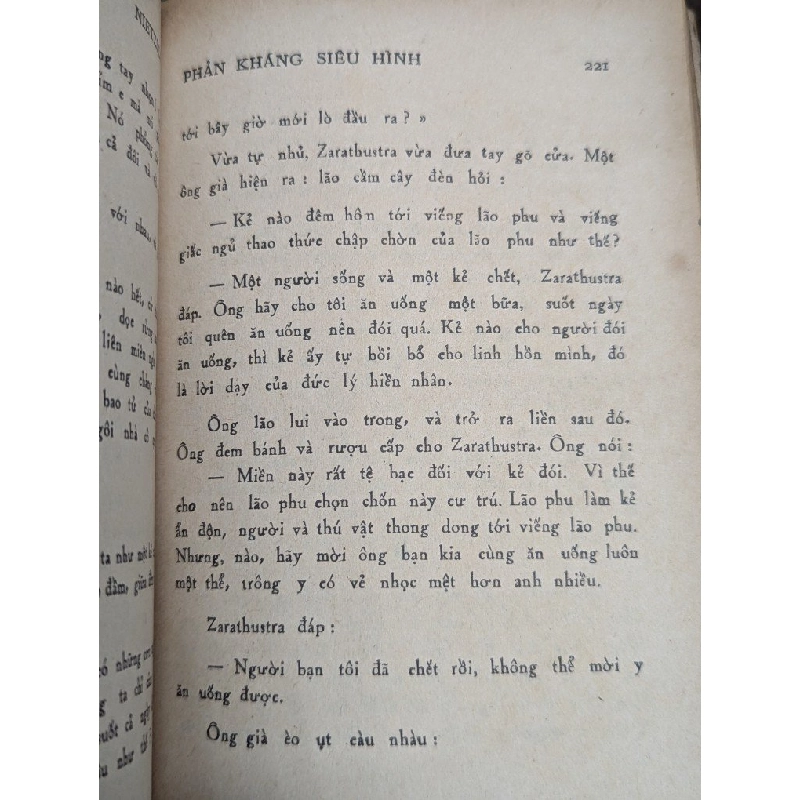 PHẢN KHÁNG SIÊU HÌNH 221
tới bây giờ mới lò đầu ra ? »
Vừa tự nhủ, Zarathustra vừa đưa tay gõ cửa. Một
ông già hiện ra : lão cầm cây đèn hỏi :
— Kẻ nào đêm hôm tới viếng lão phu và viếng
giấc ngủ thao thức chập chờn của lão phu như thế?
— Một người sống và một kẻ chết, Zarathustra
đáp. Ông hãy cho tôi ăn uống một bữa, suốt ngày
tôi quên ăn uống nên đói quá. Kẻ nào cho người đói
ăn uống, thì kẻ ấy tự bồi bổ cho linh hồn mình, đó
là lời dạy của đức lý hiền nhân.
Ông lão lui vào trong, và trở ra liền sau đó.
Ông đem bánh và rượu cấp cho Zarathustra. Ông nói :
— Miền này rất tệ bạc đối với kẻ đói. Vì thế
cho nên lão phu chọn chốn này cư trú. Lão phu làm kẻ
ẩn độn, người và thú vật thong dong tới viếng lão phu.
Nhưng, nào, hãy mời ông bạn kia cùng ăn uống luôn
một thể, trông y có vẻ nhọc mệt hơn anh nhiều.
Zarathustra đáp :
— Người bạn tôi đã chết rồi, không thể mời y
ăn uống được.
Ông già èo ụt càu nhàu :